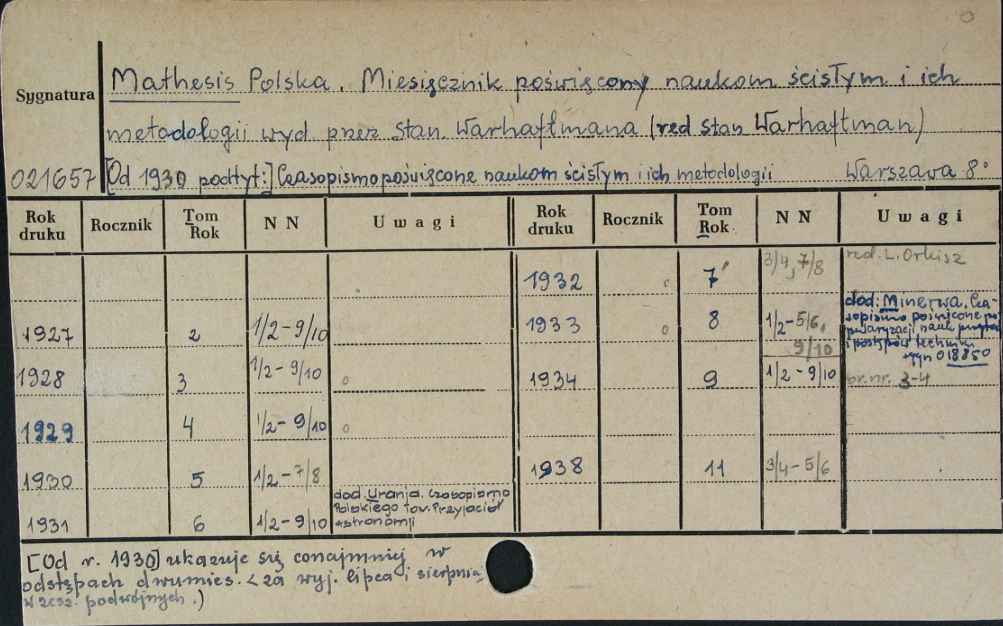 Mathesis Polska. Miesięcznik poświęcony naukom ścisłym i ich
Sygnatura
metodologii wyd. przez Stan. Warhaftmana (red Stan Warhaftman)
021657 [Od 1930 podtyt:] Czasopismo poświęcone naukom ścisłym i ich metodologii Warszawa 8°
Rok druku Rocznik Tom Rok NN Uwagi Rok druku Rocznik Tom Rok NN Uwagi
1932 7 3/4, 7/8 red. L. Orkisz
1927 2 1/2-9/10
1933 8 1/2-5/6, 9/10
dod: Minerwa. Cza-
sopismo poświęcone po-
pularyzacji nauk
i postępów techniki
sygn 018850
1928 3 1/2-9/10
1934 9 1/2-9/10 nr. 3-4
1929 4 1/2-9/10
1930 5 1/2-7/8
1938 11 3/4-5/6
1931 6 1/2-9/10
dod. Urania. Czasopismo
Polskiego Tow. Przyjaciół
Astronomji
[Od r. 1930] ukazuje się conajmniej w
odstępach dwumies. < za wyj. lipca i sierpnia
w zesz. podwójnych.)